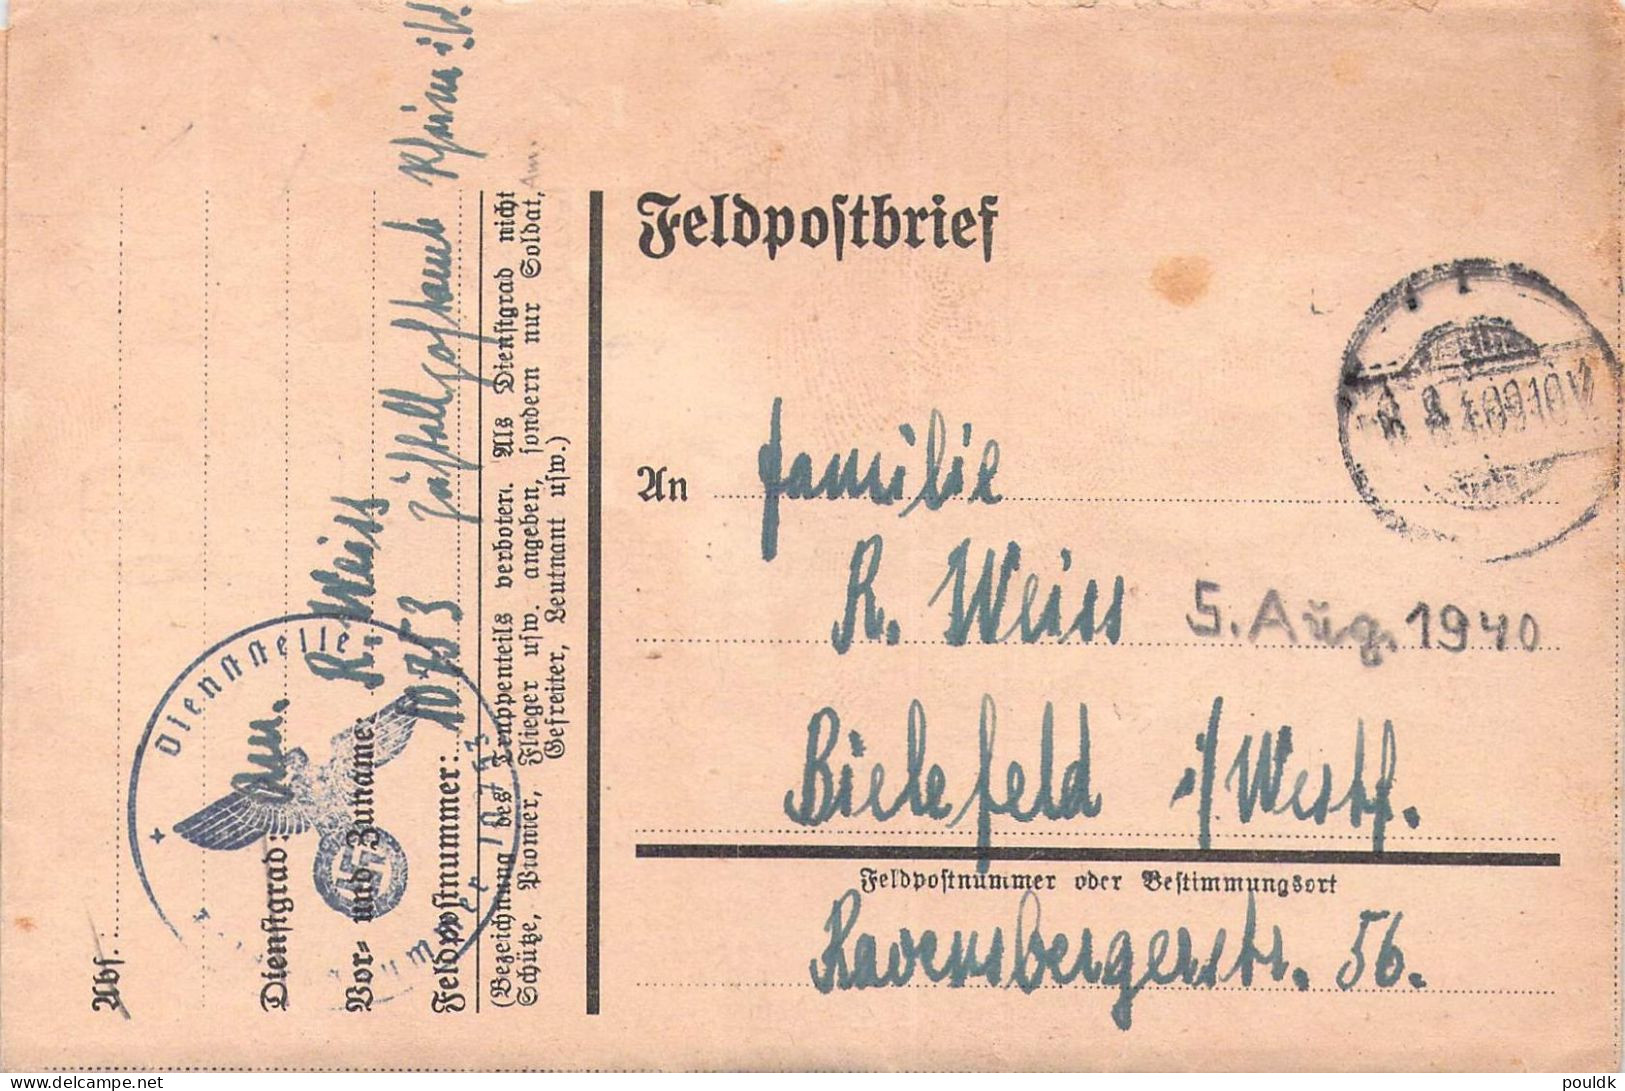 Feldpostbrief
An Familie
R. Weiss
5. Aug. 1940
Bielefeld i/Westf.
Feldpostnummer oder Bestimmungsort
Ravensbergerstr. 56.
Abs.:
Dienstgrad:
Vor- und Zuname: R. Weiss
Feldpostnummer: 10753
(Bezeichnung des Truppenteils verboten. Als Dienstgrad nicht
Schütze, Pionier, Flieger usw. angeben, sondern nur Soldat,
Gefreiter, Leutnant usw.)
Am.
Dienststelle
delcampe.net
pouldk